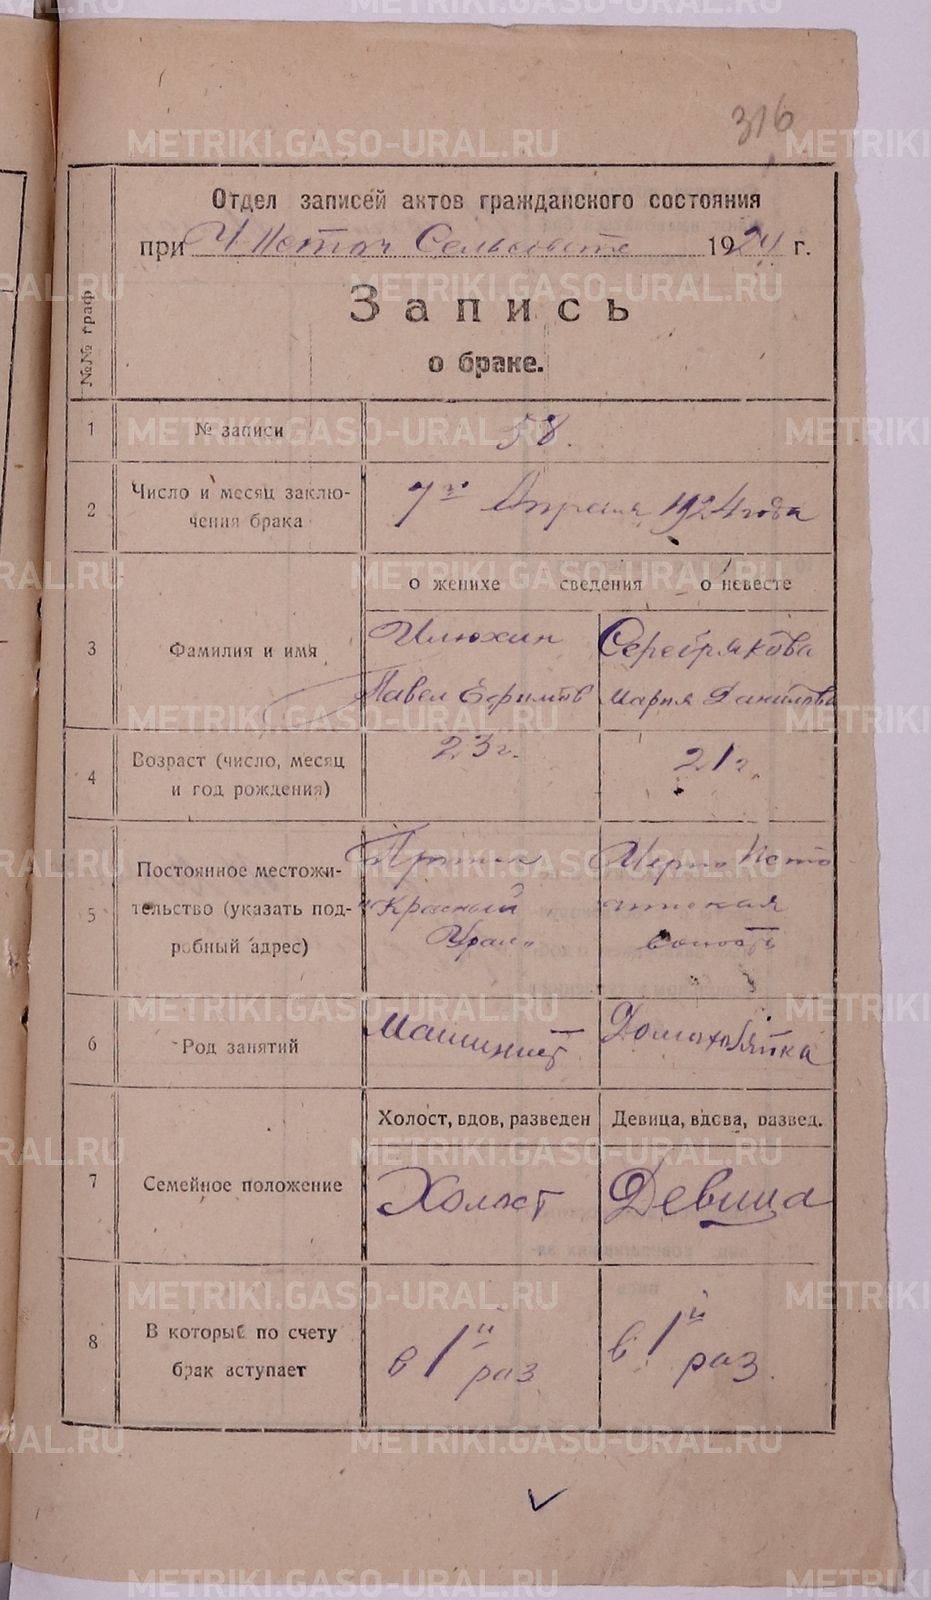 316
Отдел записей актов гражданского состояния
при Ч Источ Сельсовете 1924 г.
№№ граф
Запись
о браке.
1 № записи 58.
2 Число и месяц заклю-
чения брака
7го Апреля 1924 года
о женихе сведения о невесте
3 Фамилия и имя
Илюхин Серебрякова
Павел Ефимов Мария Данилова
4 Возраст (число, месяц
и год рождения)
23 г. 21 г.
5 Постоянное местожи-
тельство (указать под-
робный адрес)
Прииск Черно Исто
"Красный чинская
Урал" волость
6 Род занятий
Машинист Домохозяйка
Холост, вдов, разведен Девица, вдова, развед.
7 Семейное положение
Холост Девица
8 В который по счету
брак вступает
в 1й раз в 1й раз
METRIKI.GASO-URAL.RU